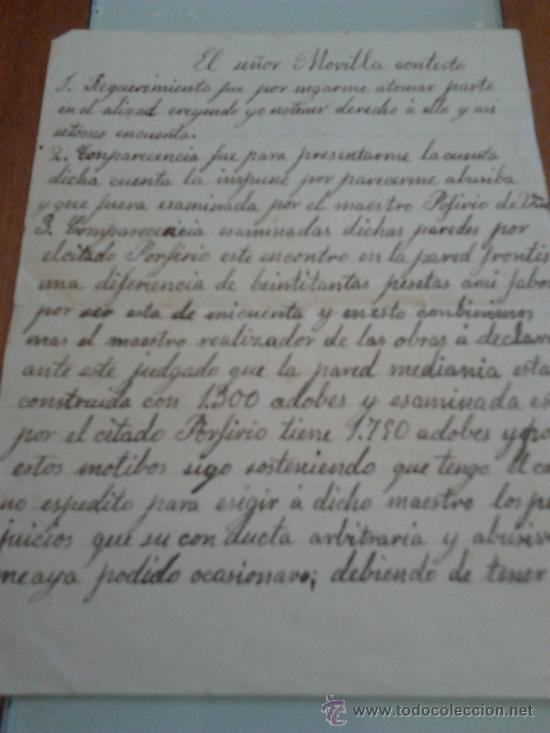 El señor Movilla contesto
1. Requerimiento fue por negarme atomar parte
en el alizad creyendo yo notener derecho á ello y asi
setomo encuenta.
2. Comparecencia fue para presentarme la cuenta
dicha cuenta la inpune por parecerme abusiba
y que fuera esaminada por el maestro Pofirio de
3. Comparecencia esaminadas dichas paredes por
el citado Porfirio este encontro en la pared frontis
una diferencia de beintitantas pesetas ami fabor
por ser esta de micuenta y enesto conbinimos
mas el maestro realizador de las obras á declara
ante este judgado que la pared mediania esta
construida con 1.300 adobes y esaminada es
por el citado Porfirio tiene 1.750 adobes y po
estos motibos sigo sosteniendo que tengo el ca
no espedito para esigir á dicho maestro los pe
juicios que su conducta arbitraria y abusiv
meaya podido ocasionare; debiendo de tener
todocoleccion
www.todocoleccion.net